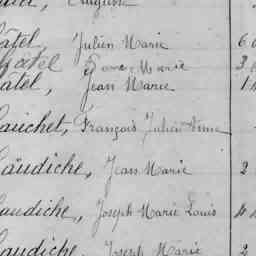 Auguste
âtel, Julien Marie 6
hâtel Marie 3
atel, Jean Marie 1
auchet, François Julien
audiche, Jean Marie 2
audiche, Joseph Marie Louis 4
audiche, Joseph Marie 2